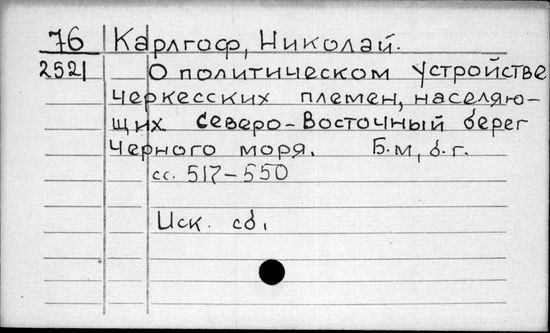 76 Карлгоф, Николай.
2521 О политическом устройстве
черкесских племен, населяю-
щих северо-восточный берег
Черного моря. Б.м, б.г.
сс. 517-550
Иск. сб.